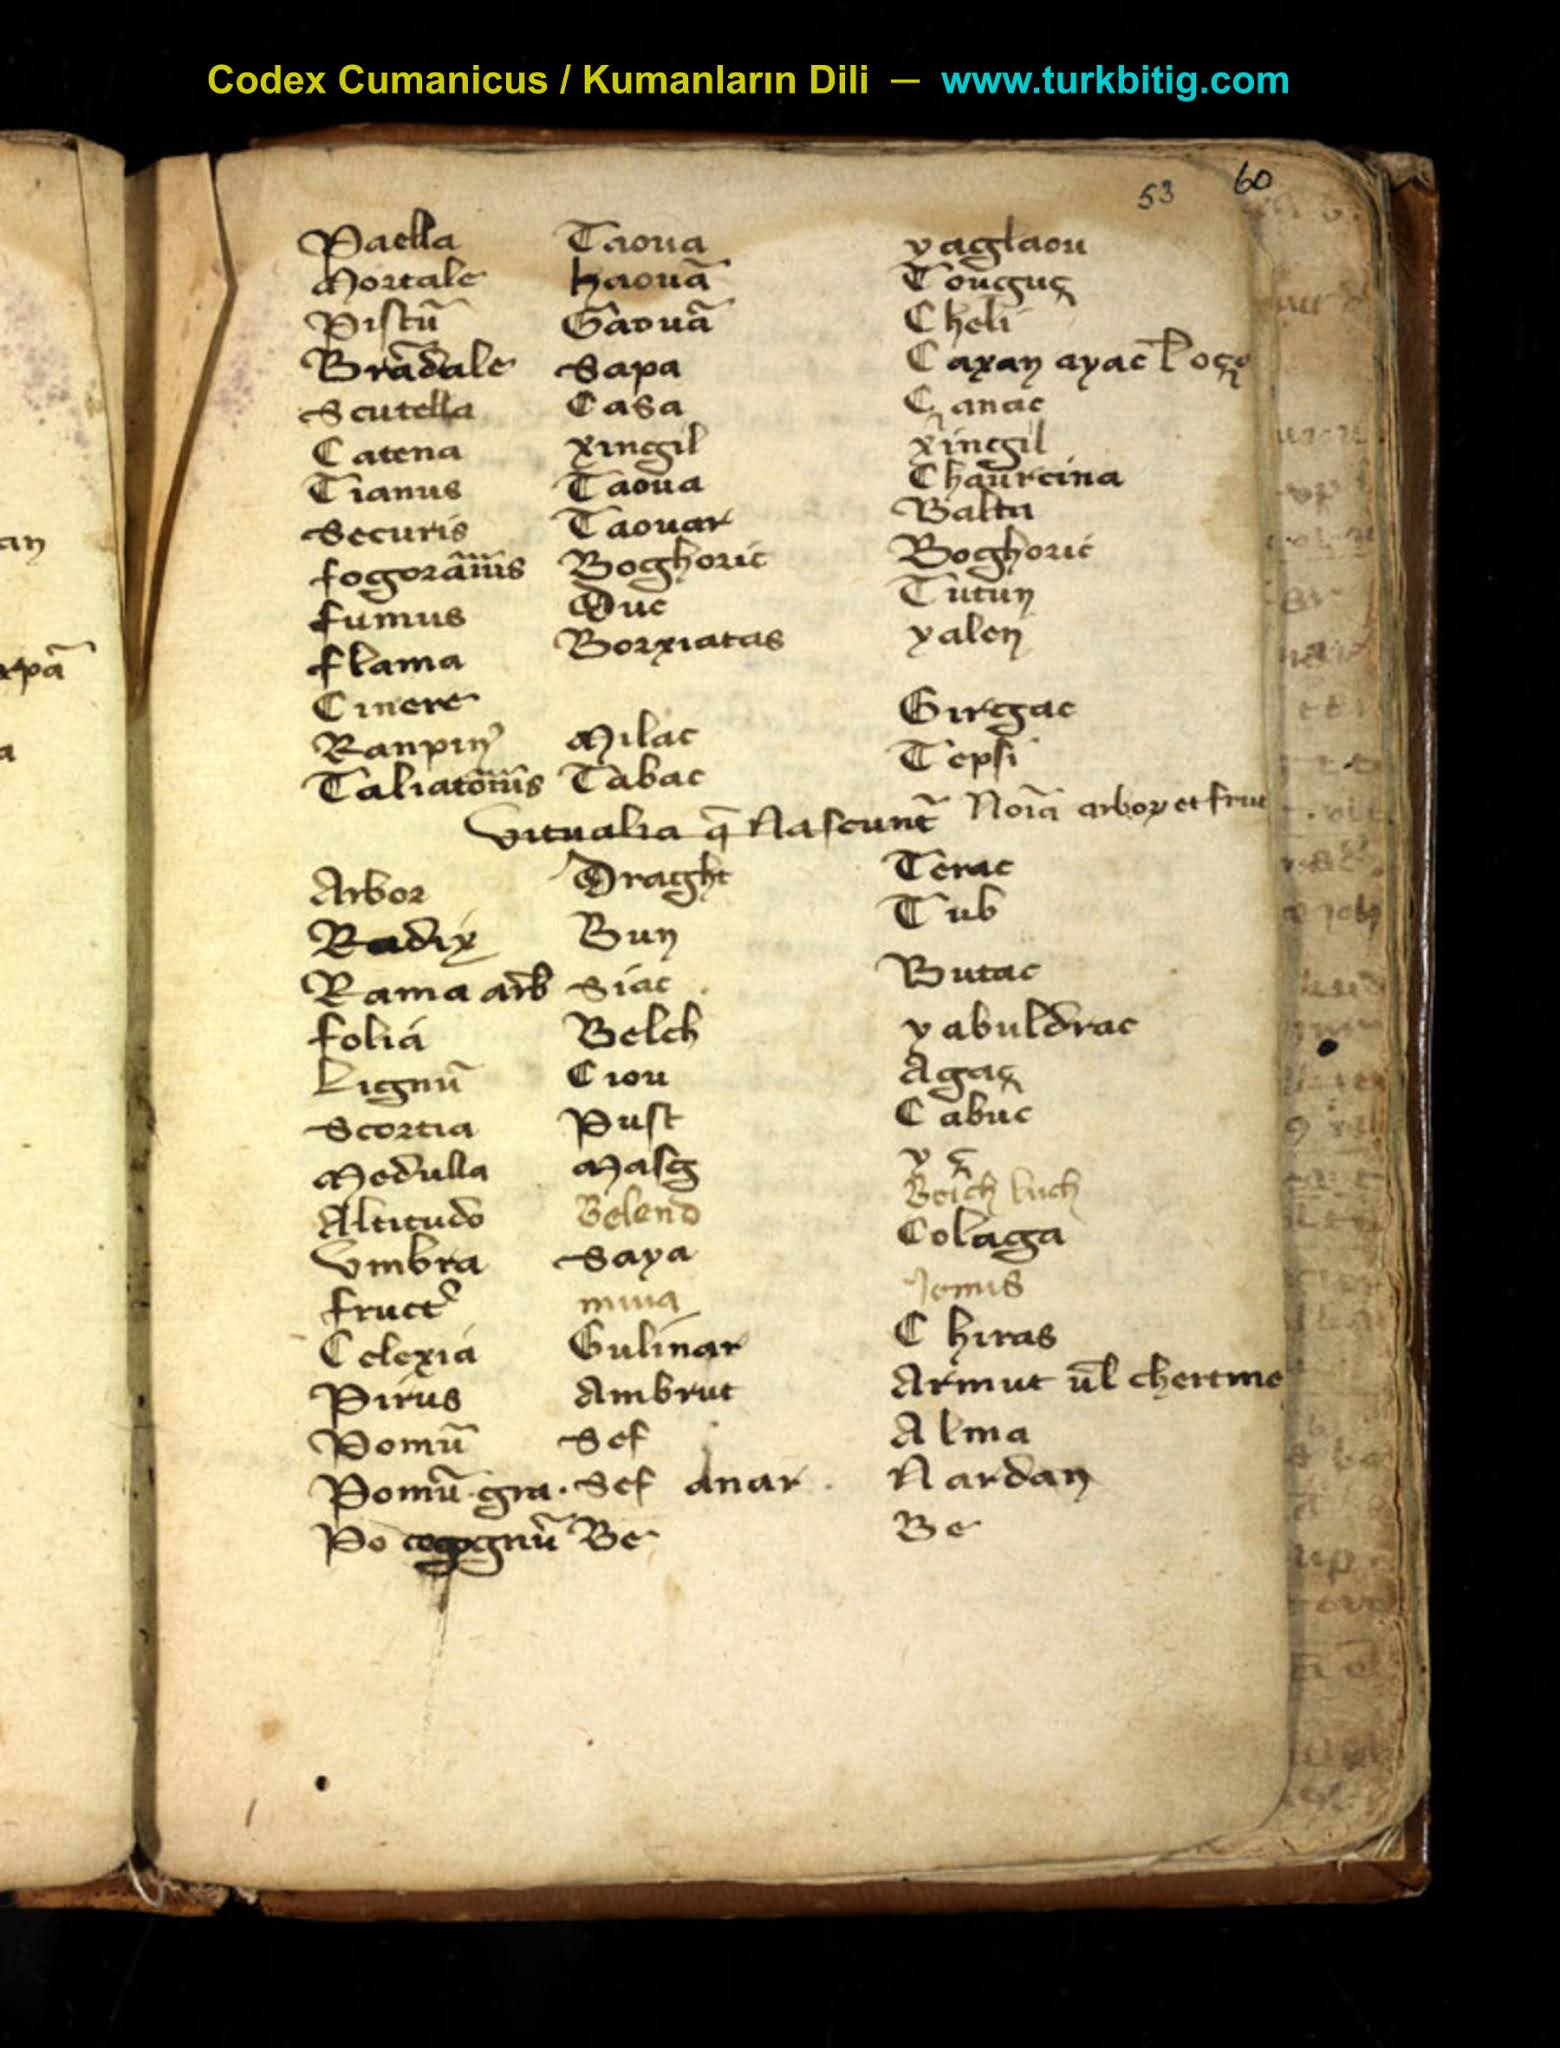 Codex Cumanicus / Kumanların Dili — www.turkbitig.com
53 60
Paella Taoua yaglaou
Mortale haouã Touguç
Pistũ Gaouã Cheli
Brãdale Sapa Caxan ayac ł oço
Scutella Casa Çanac
Catena xingil xingil
Tianus Taoua Chaurcina
Securis Taouar Balta
Boghoric Boghoric
fumus Duc Tutun
flama Borxiatas yalen
Cinere
Milac Girgac
Tabac Tepsi
Vitualia q̃ Nascunt̃ Noĩa arbor et fruc
Arbor Draght Terac
Radix Bun Tub
Rama arb̃ Siac Butac
folia Belch yabuldrac
Lignũ Ciou Agaç
Scortia Pust Cabuc
Medulla Masg yç
Altitudo Belend Beich luch
Vmbra Saya Colaga
fruct᾽ miua Jemis
Celexia Gulinar Chiras
Pirus Ambrut Armut ũl chertme
Pomũ Sef Alma
Pomũ gra. Sef anar Nardan
Po Be Be